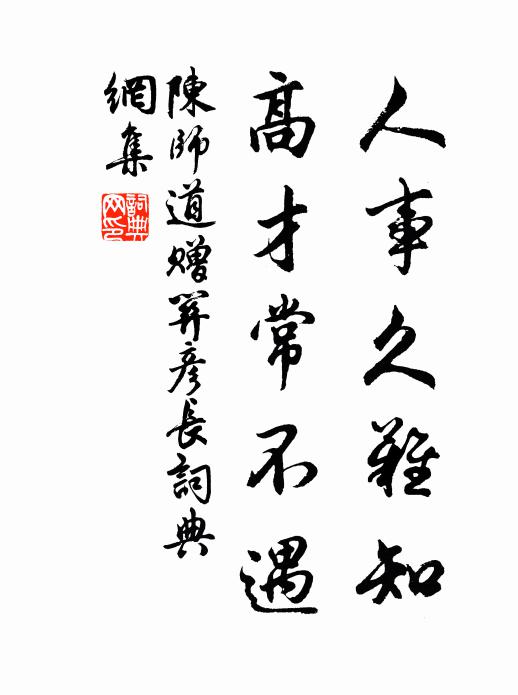 人事久難知
高才常不遇
陳師道贈关彥長詞典
網集
詞典网印